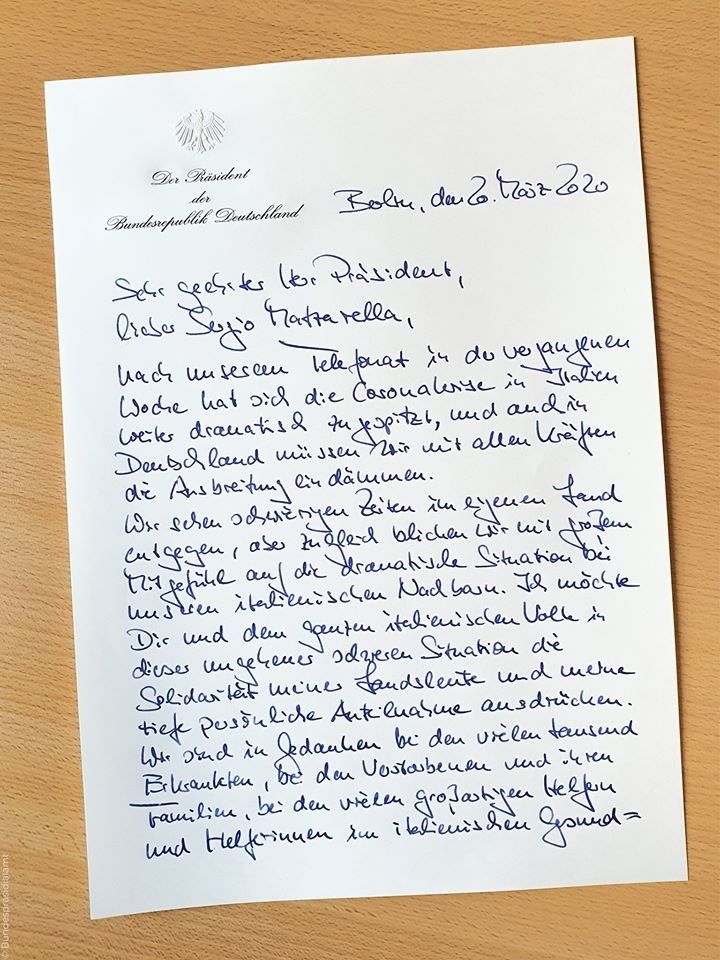 Der Präsident
der
Bundesrepublik Deutschland
Berlin, den 20. März 2020
Sehr geehrter Herr Präsident,
lieber Sergio Mattarella,
nach unserem Telefonat in der vergangenen
Woche hat sich die Coronakrise in Italien
weiter dramatisch zugespitzt, und auch in
Deutschland müssen wir mit allen Kräften
die Ausbreitung eindämmen.
Wir sehen schwierigen Zeiten im eigenen Land
entgegen, aber zugleich blicken wir mit großem
Mitgefühl auf die dramatische Situation bei
unseren italienischen Nachbarn. Ich möchte
Dir und dem ganzen italienischen Volk in
dieser ungeheuer schweren Situation die
Solidarität meiner Landsleute und meine
tiefe persönliche Anteilnahme ausdrücken.
Wir sind in Gedanken bei den vielen tausend
Erkrankten, bei den Verstorbenen und ihren
Familien, bei den vielen großartigen Helfern
und Helferinnen im italienischen Gesund=
© Bundespräsidialamt